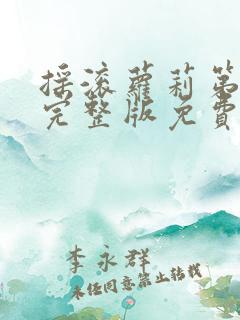 採滾蘿莉第
完整版免費
李永群
未经同意禁止转载